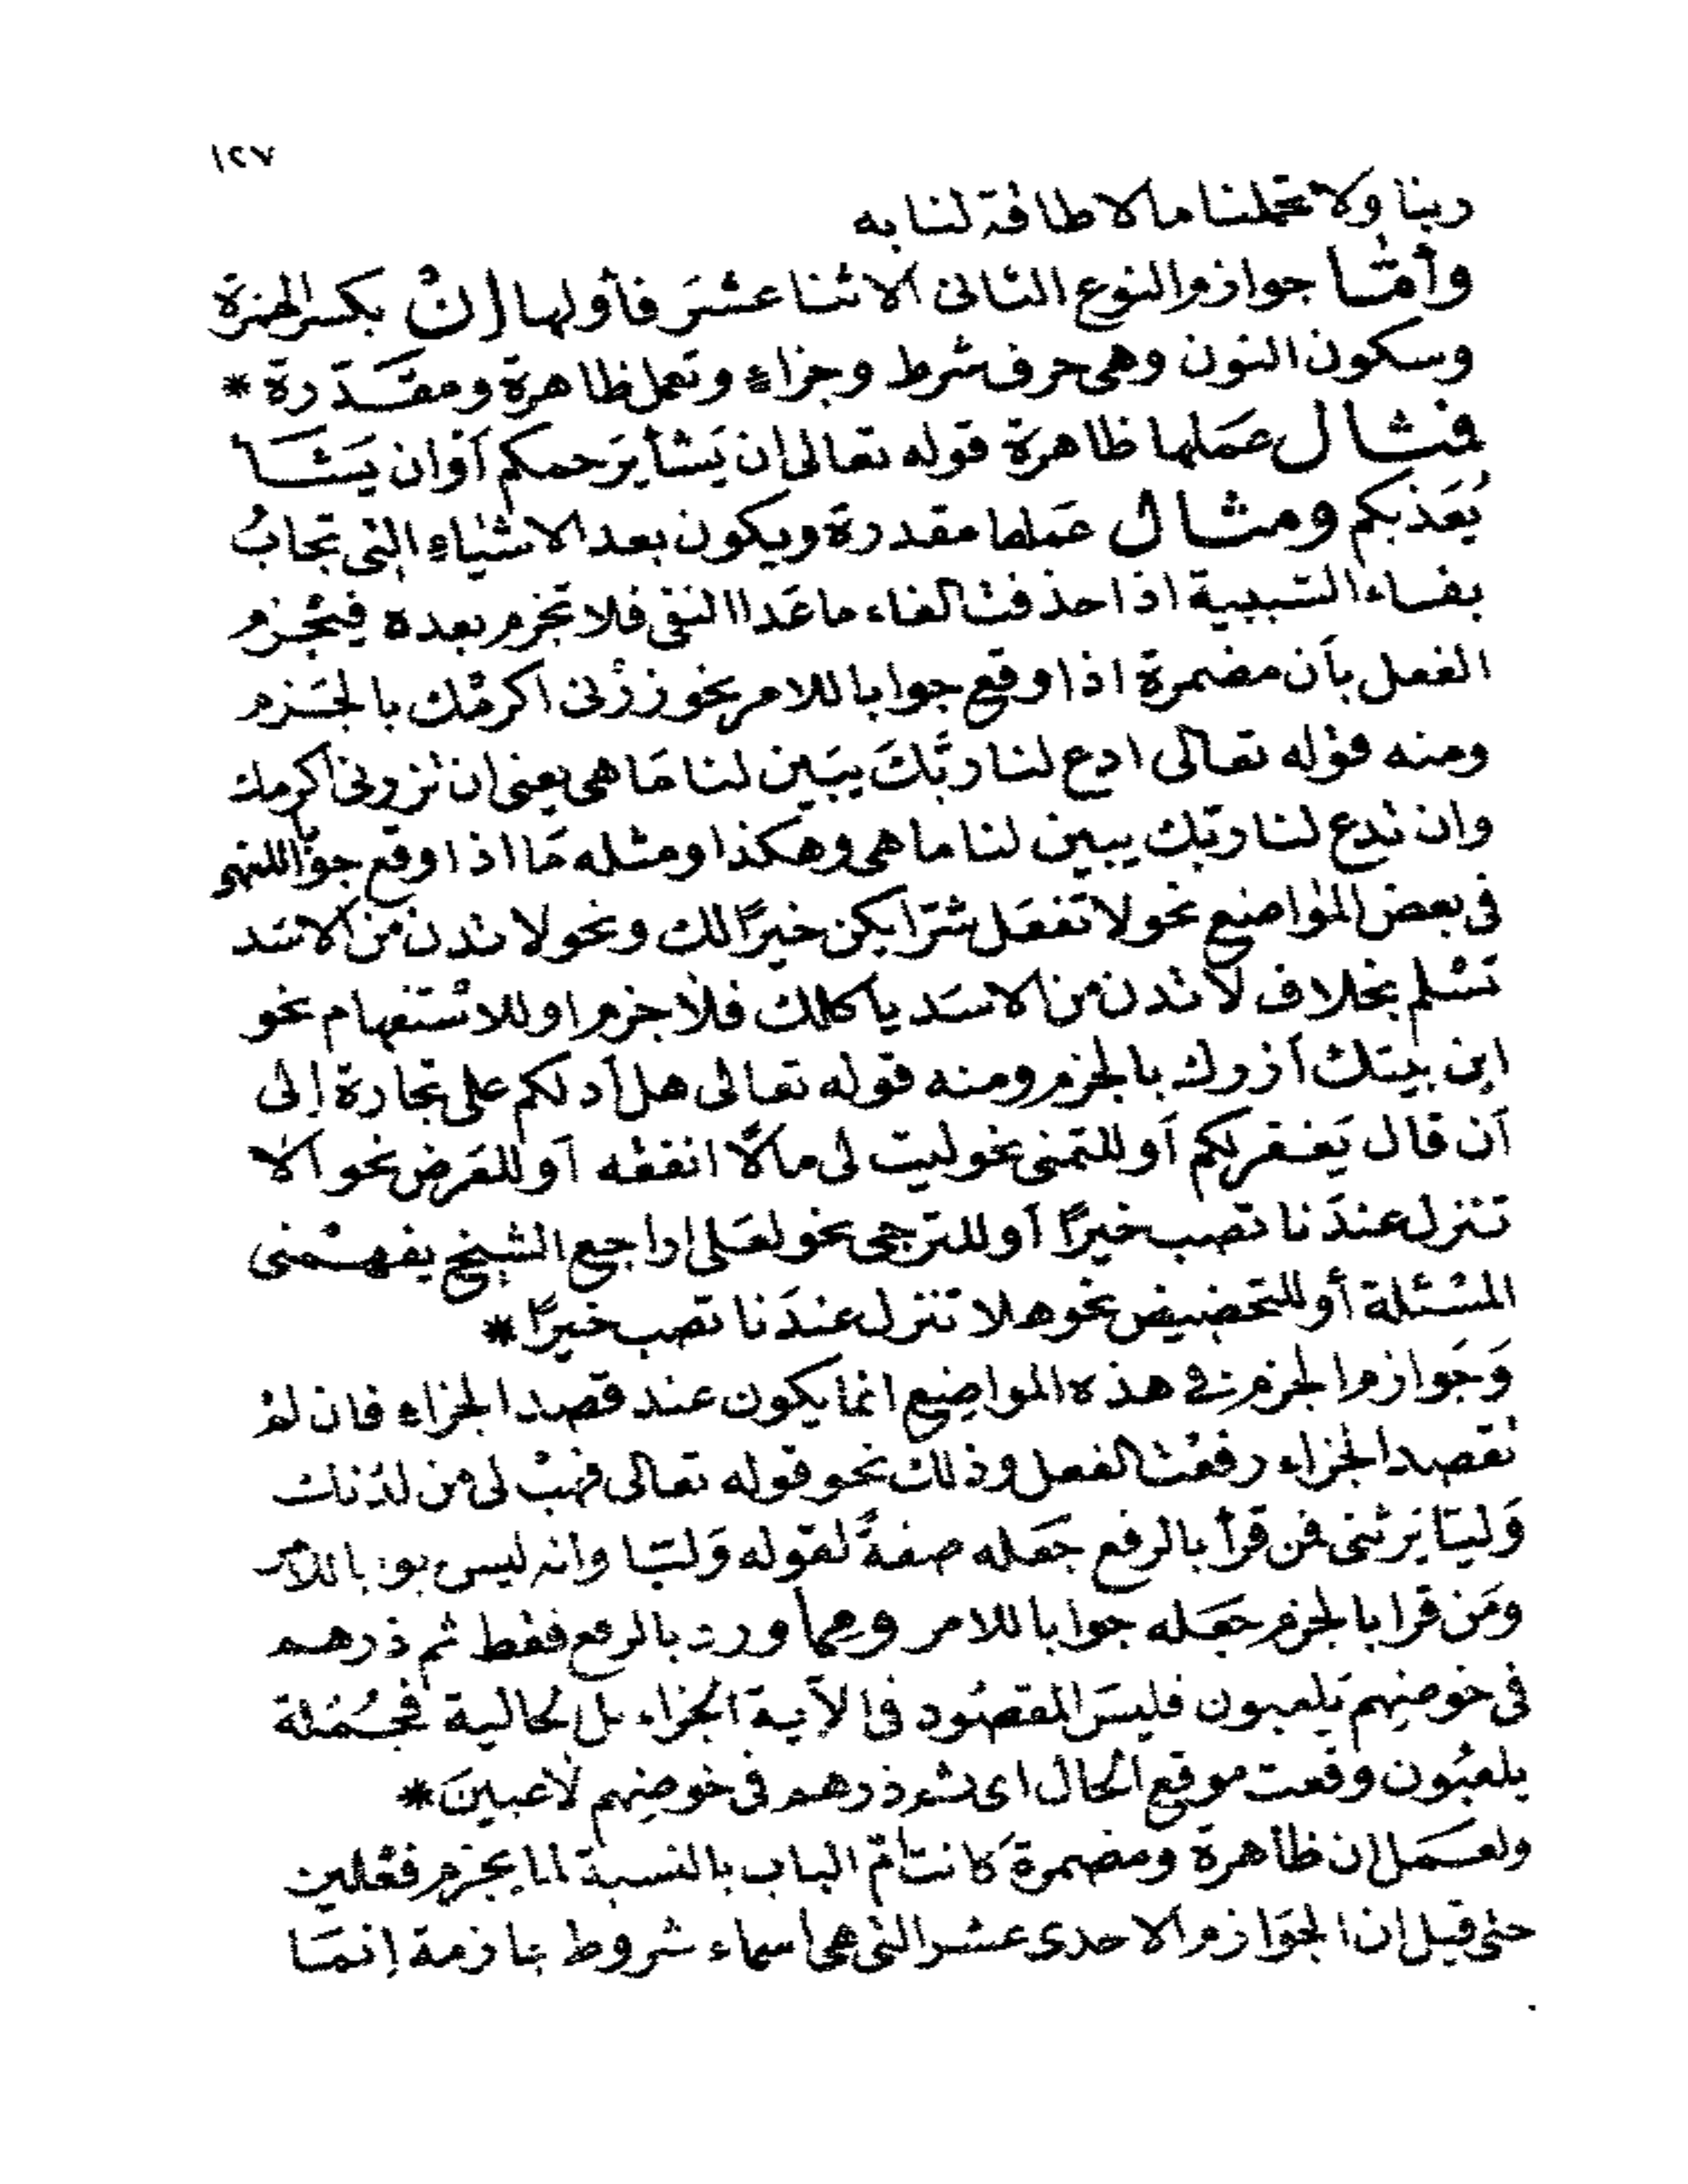 ١٢٧
ربنا ولا تحملنا ما لا طاقة لنا به
وأمّا جوازم النوع الثانى الاثنا عشرَ فأولها إنْ بكسر الهمزة
وسكون النون وهى حرف شرط وجزاءٍ وتعمل ظاهرة ومقدّرة *
فمثال عَملها ظاهرة قوله تعالى إن يَشأ يَرحمكم أوْ ان يَشَأ
يُعَذبكم ومثال عَملها مقدرة ويكون بعد الاشياءِ التى تجابُ
بفاء السّببية اذا حذفت الفاء ما عَدا النفى فلا تجزم بعده فيُجْزم
الفعل بأن مضمرة اذا وقع جوابا للامر نحو زرْنى اكرمْك بالجَزم
ومنه قوله تعالى ادع لنا ربَّكَ يبَين لنا مَا هى يعنى ان تزرنى اكرمك
وان تدع لنا ربّك يبين لنا ما هى وهكذا ومثله مَا اذا وقع جوابًا للنهى
فى بعض المواضع نحو لا تفعَل شرّا يكن خيرًا لك ونحو لا تدن من الاسَد
تسْلم بخلاف لا تدن من الاسَد ياكلك فلا جزم او للاسْتفهام نحو
اين بيتك أزرك بالجزم ومنه قوله تعالى هل أدلكم على تجارة إلى
أن قال يَغفر لكم أو للتمنى نحو ليت لى مالًا انفقه أو للعَرض نحو ألا
تنزل عندَنا تصب خيرًا أو للترجى نحو لعَلى اراجع الشيخ يفهمْنى
المسْئلة أو للتحضيض نحو هلا تنزل عندَنا تصب خيرًا *
وَجَوازم الجزم فى هذه المواضِع انما يكون عند قصد الجزاءِ فان لمْ
تقصد الجزاء رفعْت الفعل وذلك نحو قوله تعالى فهبْ لى من لدُنك
وَليّا يَرثنى فمن قرأ بالرفع جَعَله صفةً لقوله وَليّا وانه ليس جوابا للامر
ومَن قرا بالجزم جعَله جوابا للامر ومما ورد بالرفع فقط ثم ذرهم
فى خوضِهم يَلعبون فليسَ المقصُود فى الآية الجزاء بل الحالية فجُملة
يلعبُون وقعت موقع الحال اى ثم ذرهم فى خوضِهم لاعبينَ *
ولعمَل ان ظاهرة ومضمرة كانت أمّ الباب بالنسبة لما يجزم فعْلين
حتى قيل ان الجوَازم الاحدى عشر التى هى أسماء شروط جازمة إنمَا